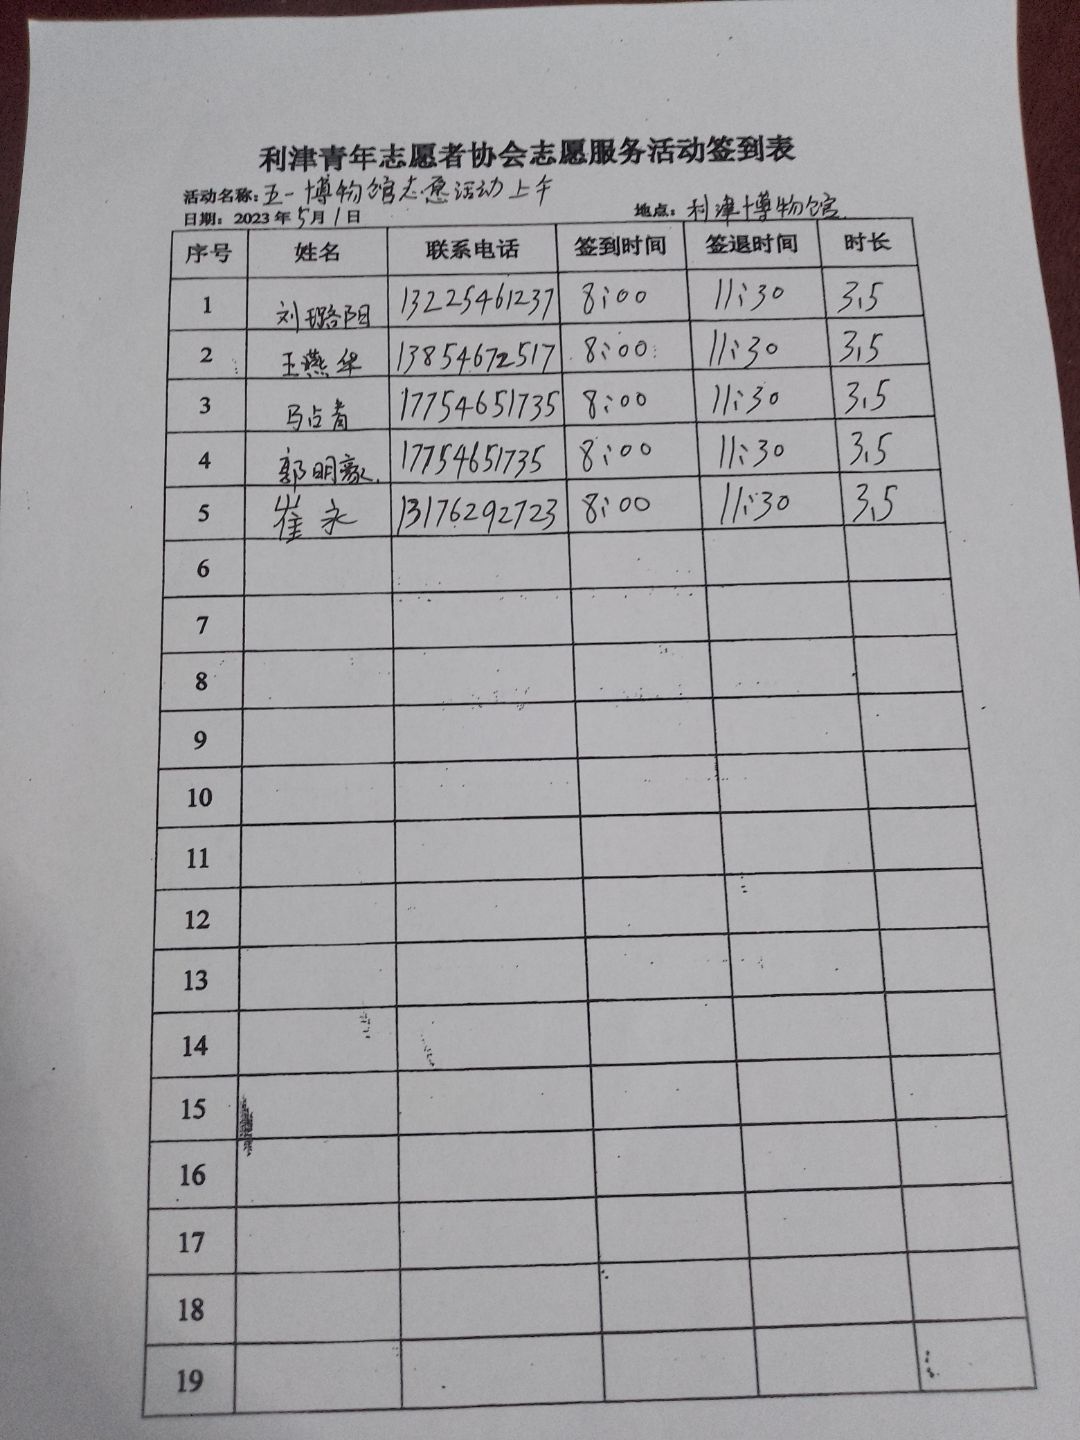 利津青年志愿者协会志愿服务活动签到表
活动名称：五一博物馆志愿活动上午
日期：2023年5月1日 地点：利津博物馆
序号 姓名 联系电话 签到时间 签退时间 时长
1 刘璐阳 13225461237 8:00 11:30 3.5
2 王燕华 13854672517 8:00 11:30 3.5
3 马占青 17754651735 8:00 11:30 3.5
4 郭明豪 17754651735 8:00 11:30 3.5
5 崔永 13176292723 8:00 11:30 3.5
6
7
8
9
10
11
12
13
14
15
16
17
18
19